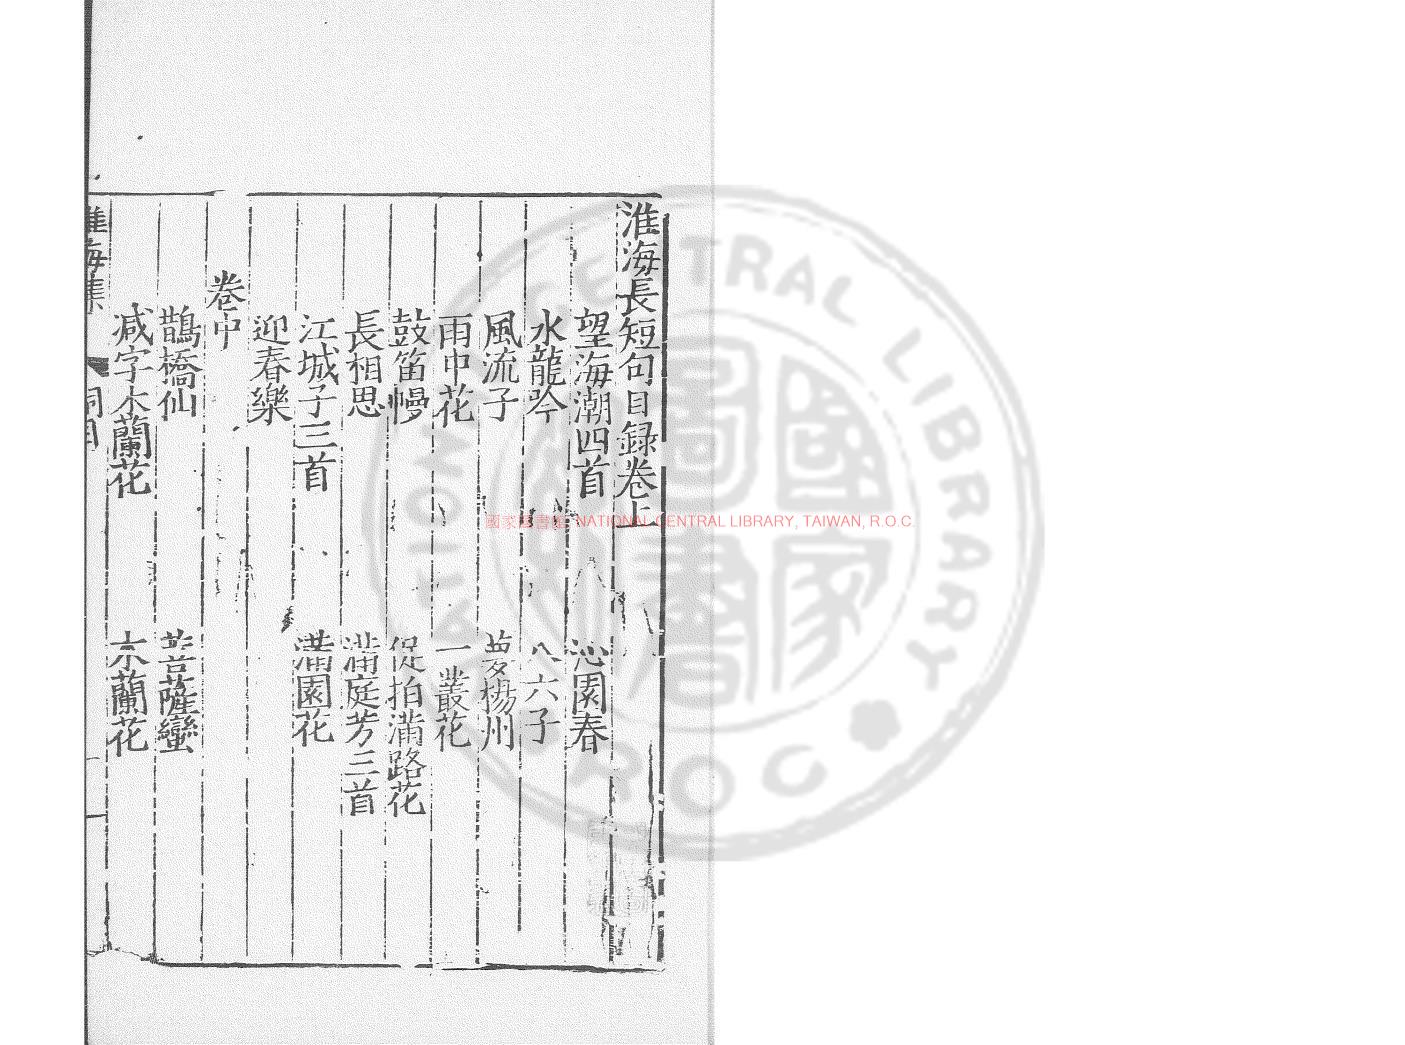 淮海長短句目録卷上
望海潮四首　沁園春
水龍吟　八六子
風流子　夢楊州
雨中花　一叢花
鼓笛慢　促拍滿路花
長相思　滿庭芳三首
江城子三首　滿園花
迎春樂
卷中
鵲橋仙　菩薩蠻
减字木蘭花　木蘭花
淮海集　詞目　一
國家圖書館 NATIONAL CENTRAL LIBRARY, TAIWAN, R.O.C.
NATIONAL CENTRAL LIBRARY
ROC
國家圖書